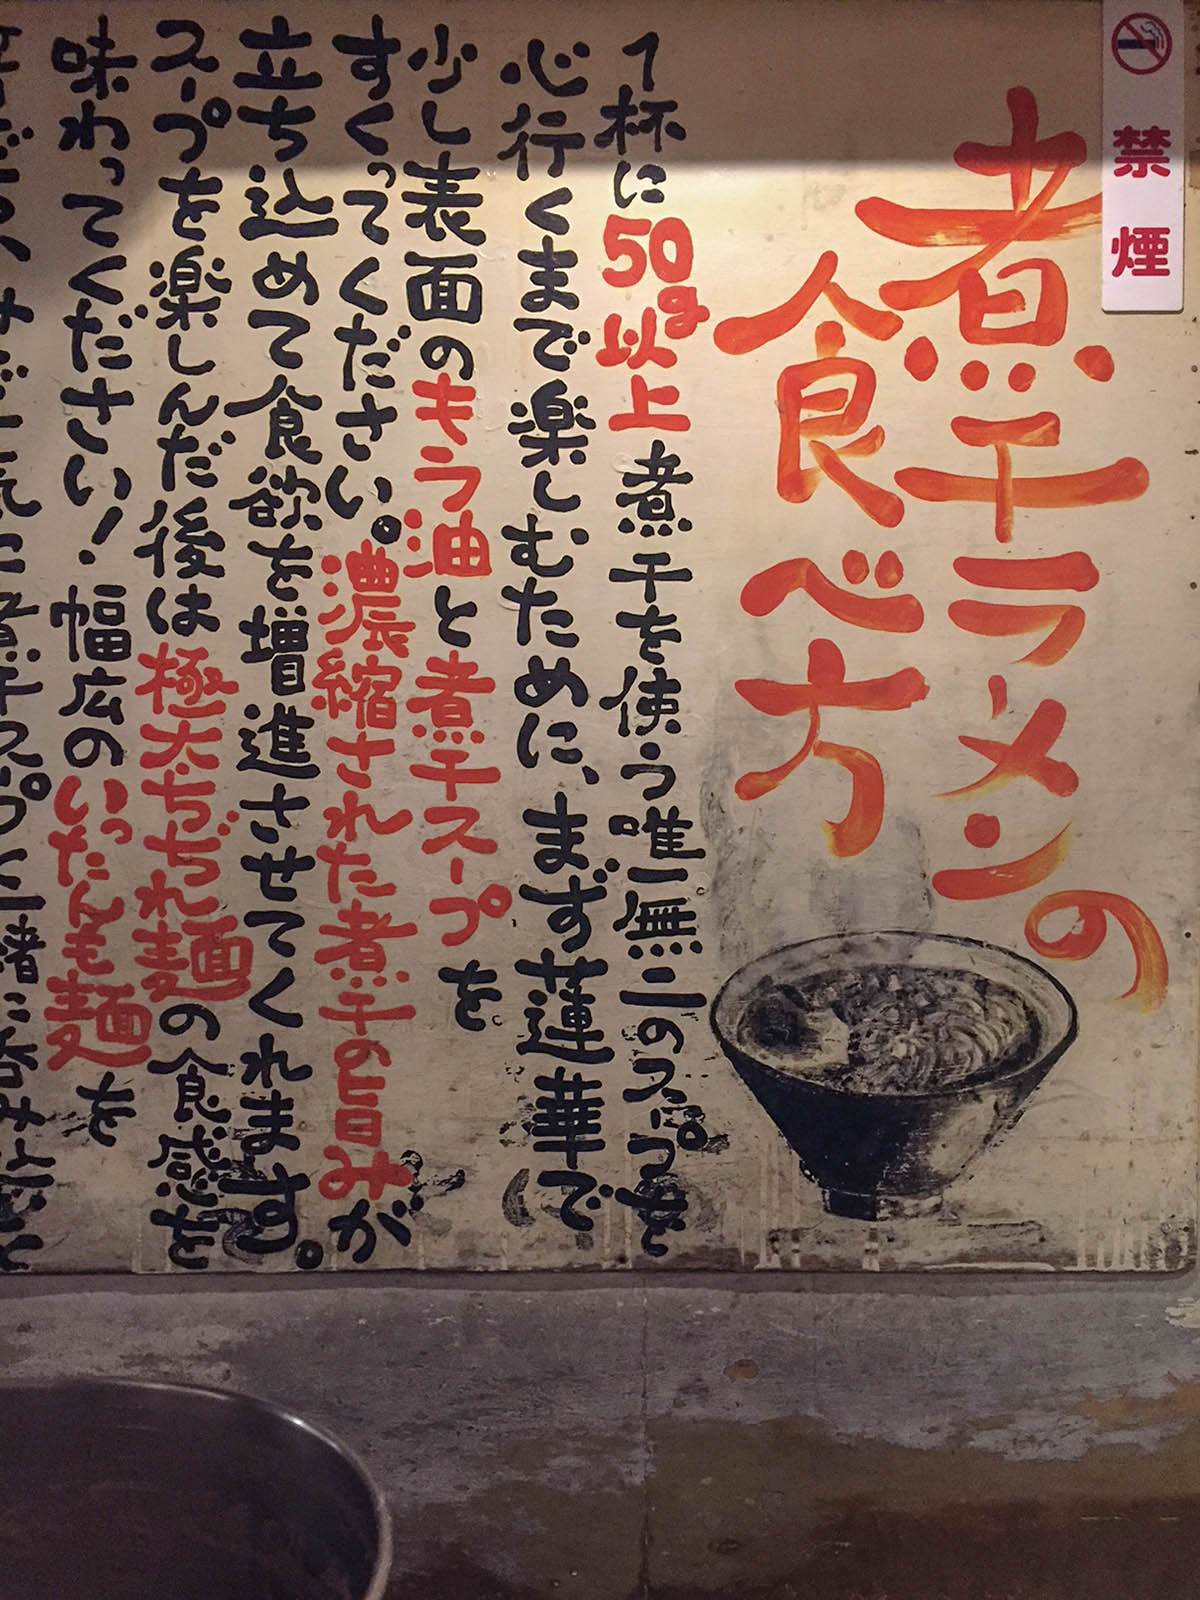 禁煙
煮干ラーメンの
食べ方
1杯に50g以上煮干を使う唯一無二のスープを
心行くまで楽しむために、まず蓮華で
少し表面のキラ油と煮干スープを
すくってください。濃縮された煮干の旨みが
立ち込めて食欲を増進させてくれます。
スープを楽しんだ後は極太ちぢれ麺の食感を
味わってください!幅広のいったんも麺を